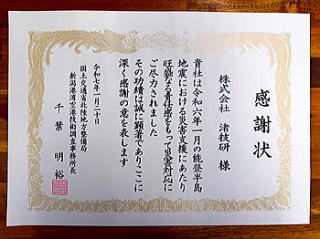 感謝状
株式会社 渚技研 様
貴社は令和六年一月の能登半島
地震における災害支援にあたり
旺盛なる責任感をもって災害対応に
ご尽力されました
その功績は誠に顕著でありここに
深く感謝の意を表します
令和七年一月二十日
国土交通省北陸地方整備局
新潟港湾空港技術調査事務所長
千葉 明裕